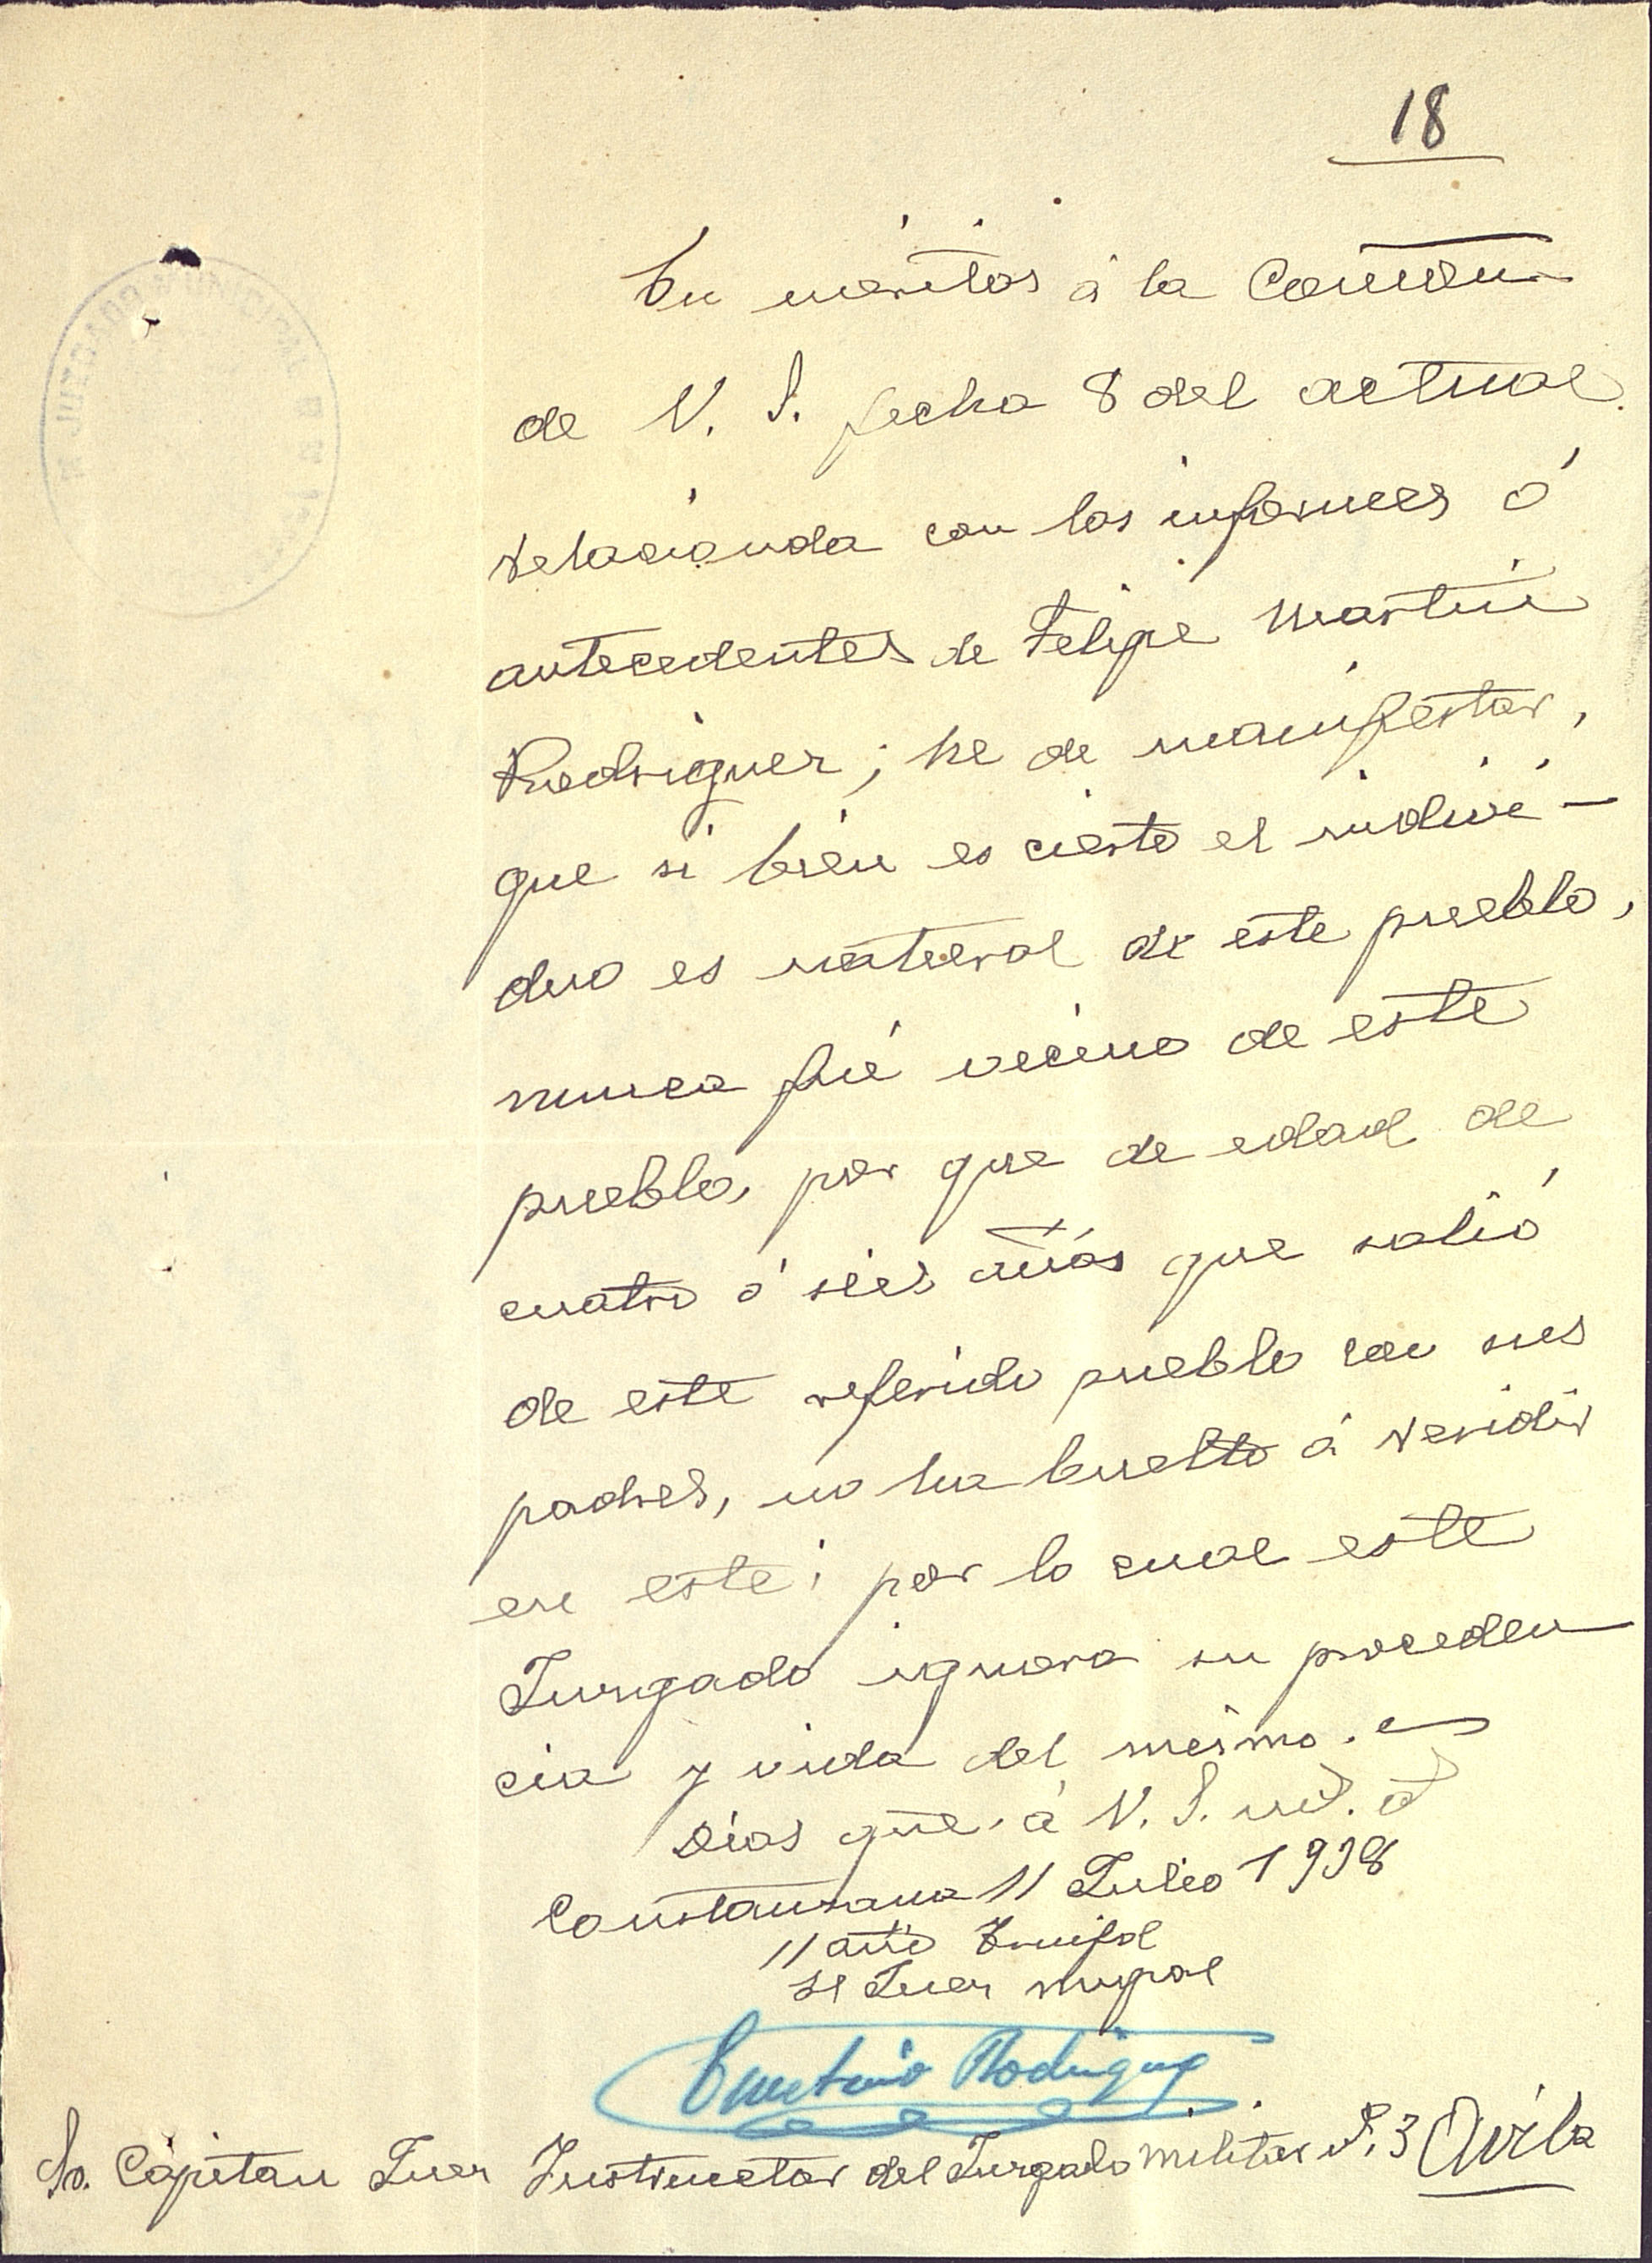 18
En meritos á la Comun
de V. S. fecha 8 del actual
relacionda con los informes ó
antecedentes de Felipe Martin
Rodriguez; he de manifestar,
que si bien es cierto el indivi-
duo es natural de este pueblo,
nunca fué vecino de este
pueblo, por que de edad de
cuatro ó seis años que salió
de este referido pueblo con sus
padres, no ha buelto á residir
en este; por lo cual este
Juzgado ignora su proceden
cia y vida del mismo.
Dios gue. á V. S. m. a
Constanzana 11 Julio 1938
II año Triunfal
El Juez mupal
Emeterio Rodriguez
Sr. Capitan Juez Instructor del Juzgado militar nº. 3 Avila